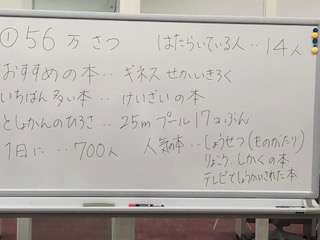 ① 56万さつ はたらいている人‥14人
おすすめの本‥ギネスせかいきろく
いちばん多い本‥けいざいの本
としょかんのひろさ‥25mプール17こぶん
1日に‥700人 人気の本‥しょうせつ(ものがたり)
りょこう、しかくの本
テレビでしょうかいされた本